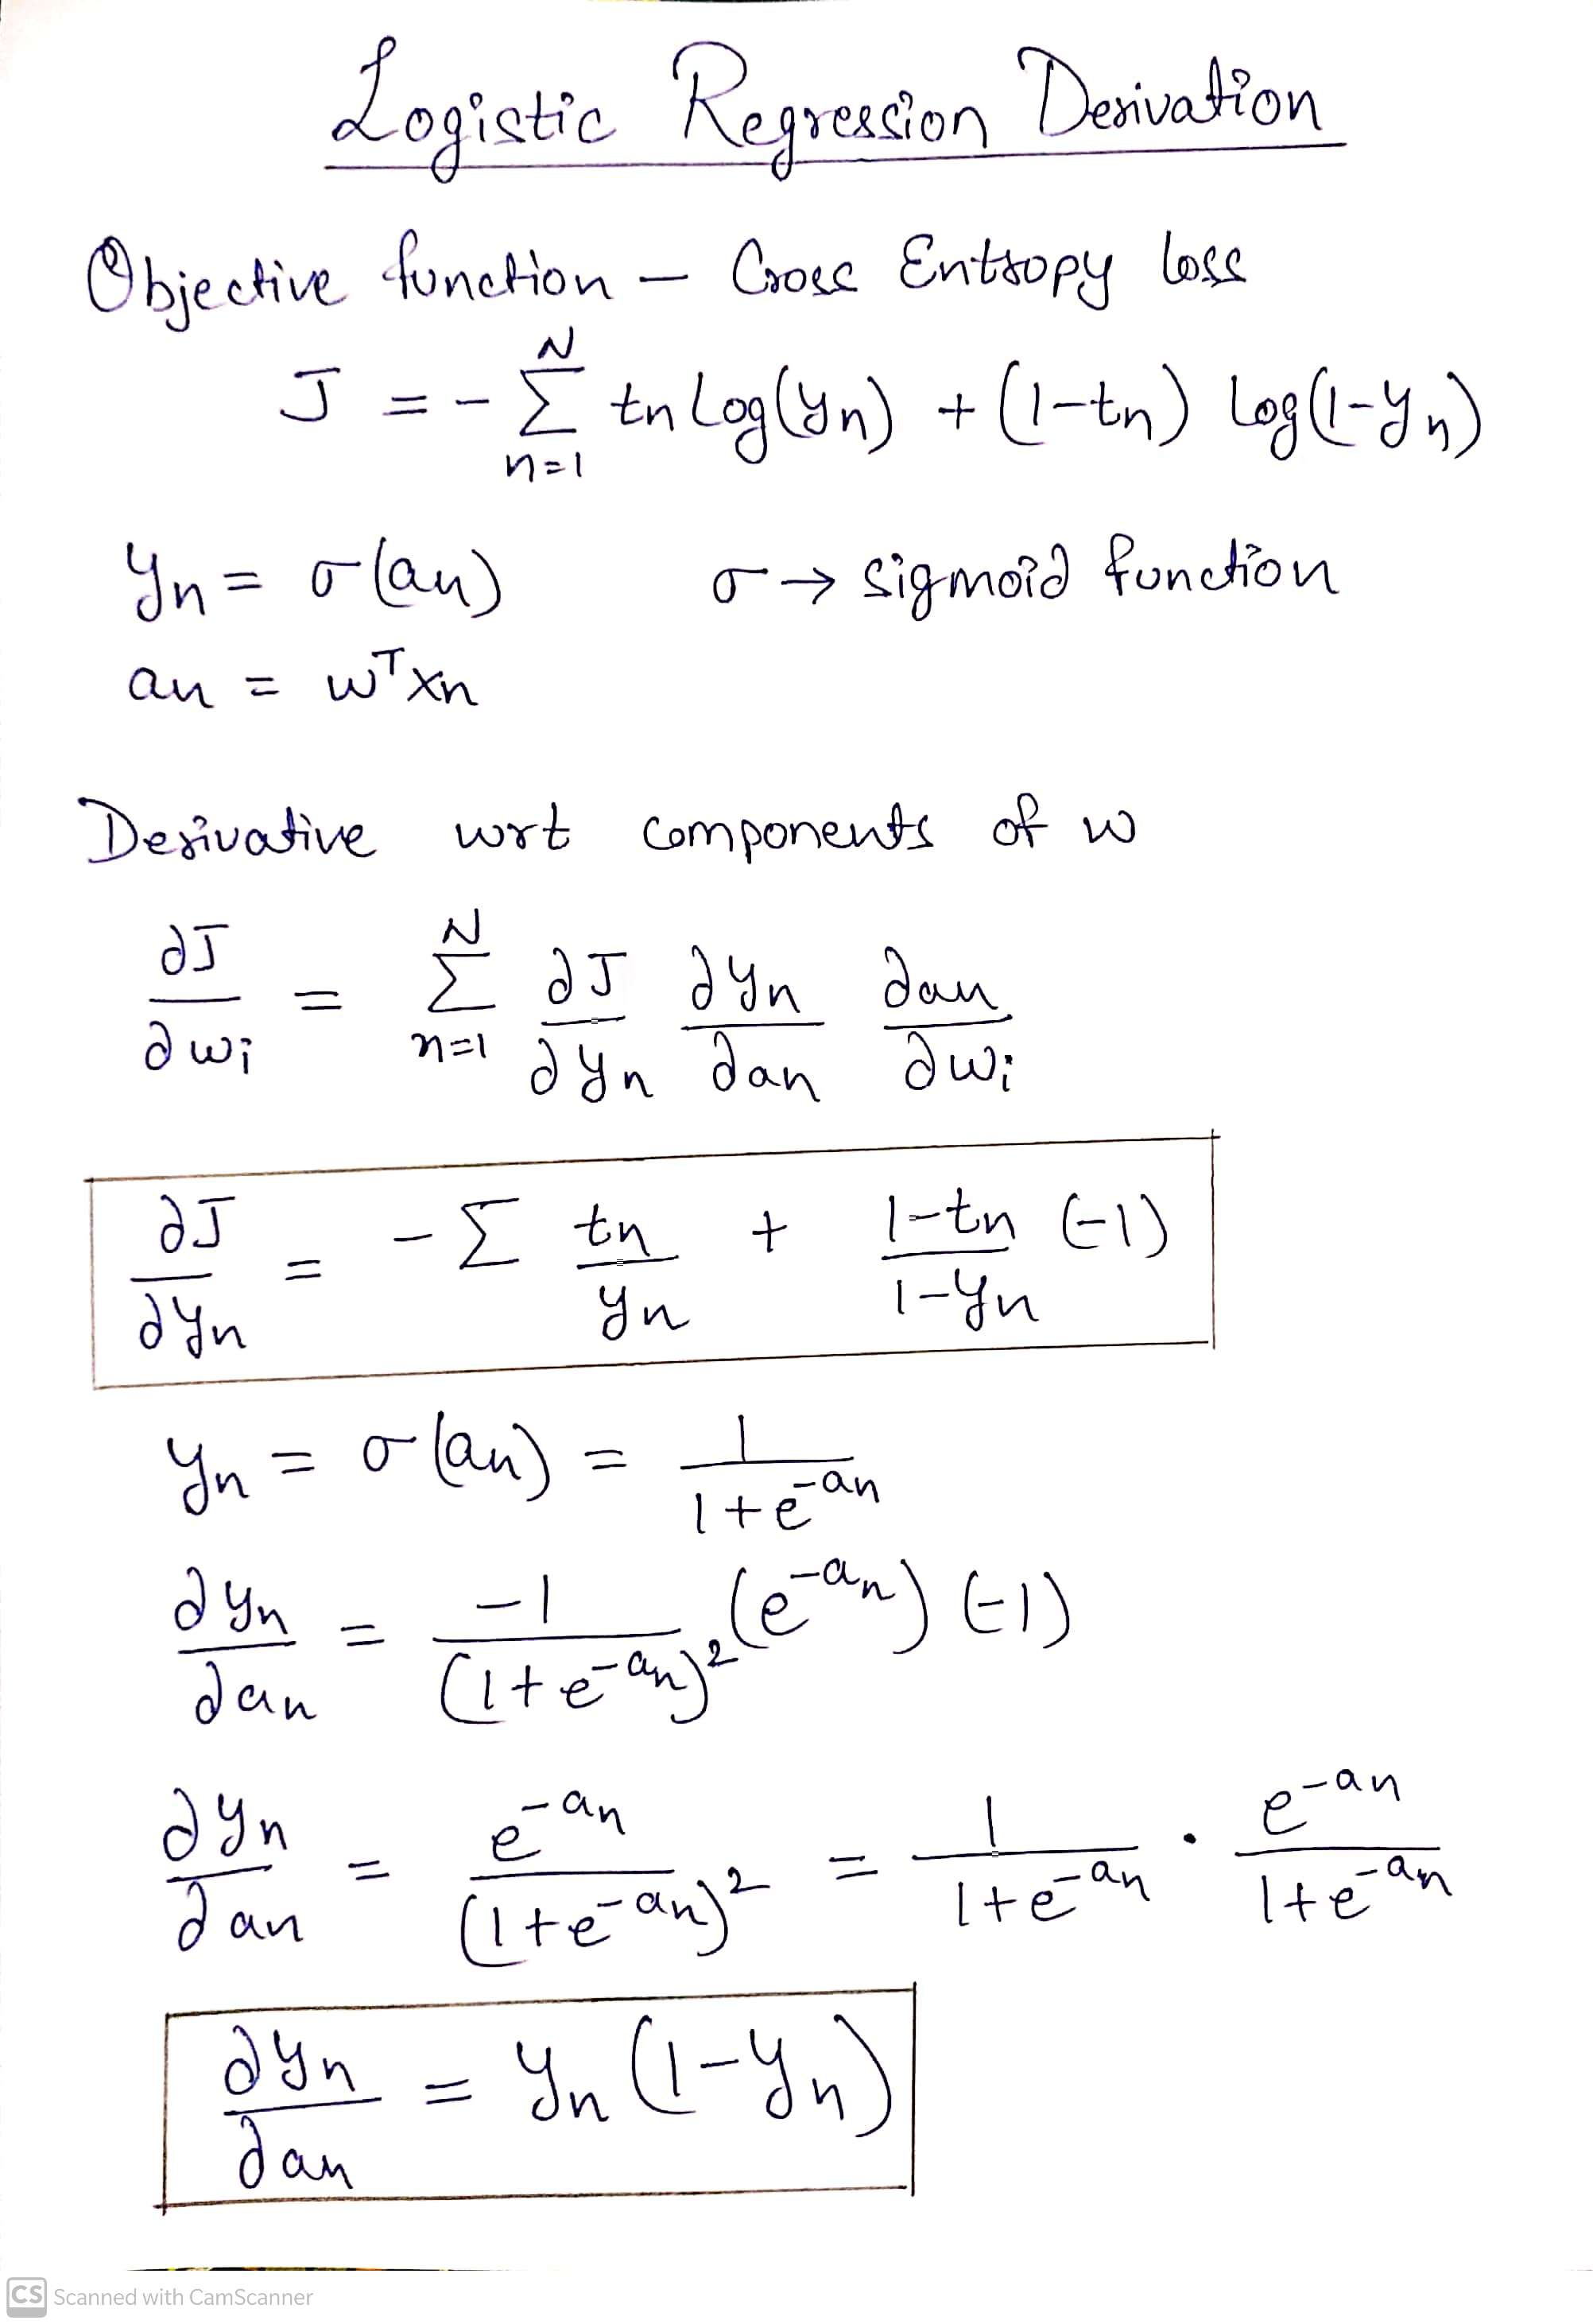 Logistic Regression Derivation
Objective function – Cross Entropy loss
J = - Σ_{n=1}^{N} tn log(yn) + (1-tn) log(1-yn)
yn = σ(an) σ → sigmoid function
an = w^T xn
Derivative wrt components of w
∂J/∂wi = Σ_{n=1}^{N} ∂J/∂yn ∂yn/∂an ∂an/∂wi
∂J/∂yn = - Σ tn/yn + (1-tn)/(1-yn) (-1)
yn = σ(an) = 1/(1+e^{-an})
∂yn/∂an = -1/(1+e^{-an})^2 (e^{-an}) (-1)
∂yn/∂an = e^{-an}/(1+e^{-an})^2 = 1/(1+e^{-an}) · e^{-an}/(1+e^{-an})
∂yn/∂an = yn (1-yn)
CS Scanned with CamScanner